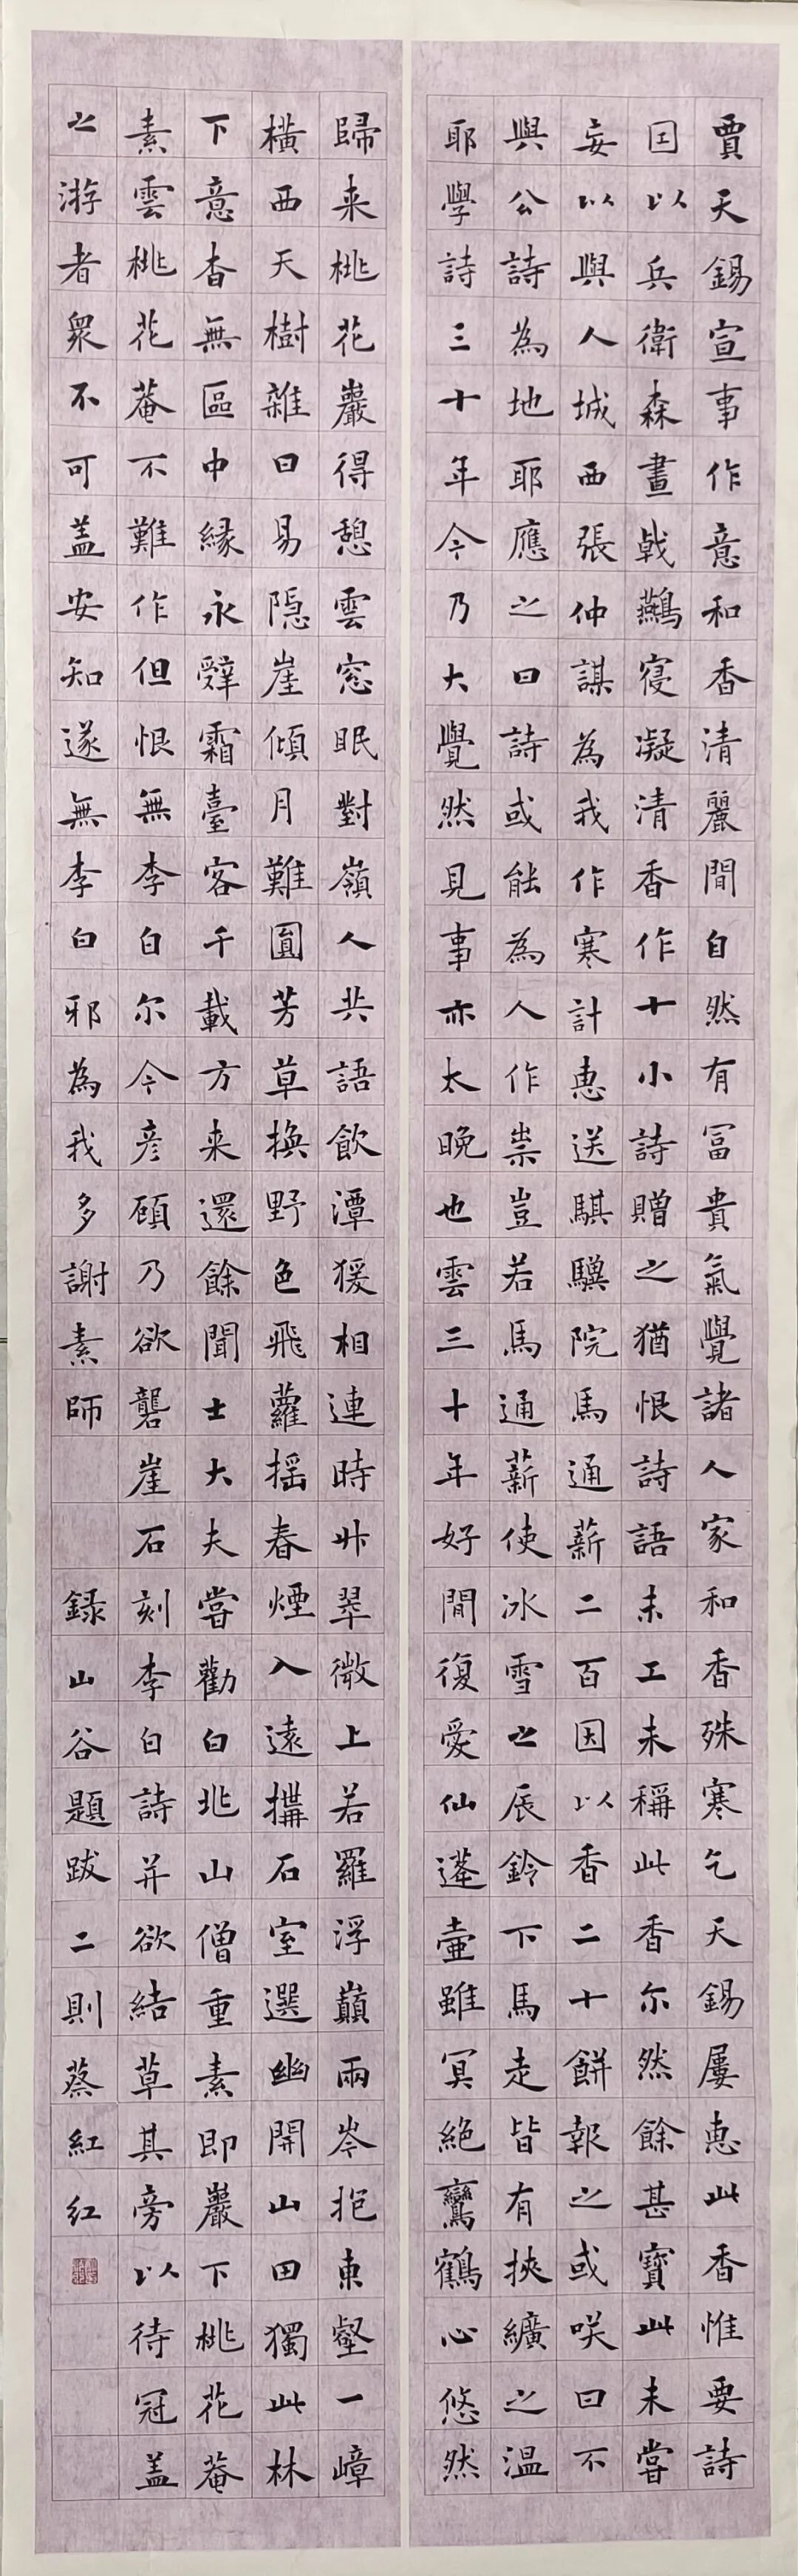 賈天錫宣事作意和香清麗閒自然有冨貴氣覺諸人家和香殊寒乞天錫屢惠此香惟要詩
囙以兵衛森畫戟鷰寑凝清香作十小詩贈之猶恨詩語未工未稱此香尔然餘甚寳此未嘗
妄以與人城西張仲謀為我作寒計惠送騏驥院馬通薪二百因以香二十餅報之或咲曰不
與公詩為地耶應之曰詩或能為人作祟豈若馬通薪使冰雪之辰鈴下馬走皆有挾纊之温
耶學詩三十年今乃大覺然見事亦太晚也雲三十年好閒復愛仙蓬壷雖冥絶鸞鶴心悠然
歸来桃花巖得憩雲窓眠對嶺人共語飲潭猨相連時昇翠微上若羅浮巔兩岑抱東壑一嶂
橫西天樹雜日易隠崖傾月難圎芳草換野色飛蘿摇春煙入逺搆石室選幽開山田獨此林
下意杳無區中縁永辭霜臺客千載方来還餘聞士大夫嘗勸白兆山僧重素即巖下桃花菴
素雲桃花菴不難作但恨無李白尔今彦頋乃欲礱崖石刻李白詩并欲結草其旁以待冠盖
之游者衆不可盖安知遂無李白邪為我多謝素師
録山谷題跋二則蔡紅红